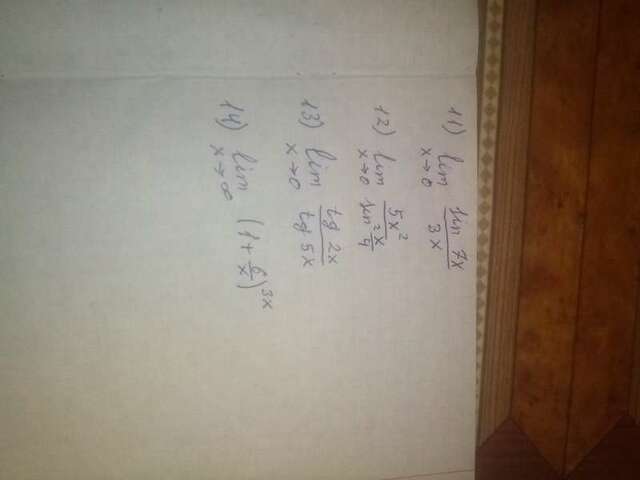 11) lim x→0 sin 7x / 3x
12) lim x→0 5x² / sin² x/4
13) lim x→0 tg 2x / tg 5x
14) lim x→∞ (1 + 6/x)^3x